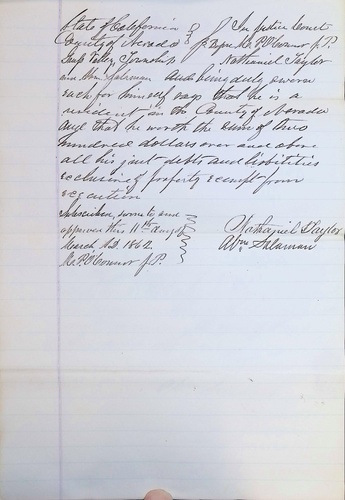 State of California } In Justice Court
County of Nevada } before M. P. O'Connor J.P.
Grass Valley Township } Nathaniel Taylor
and Abm. Salaman and being duly sworn
each for himself says that he is a
resident in the County of Nevada
and that he worth the sum of two
hundred dollars over and above
all his just debts and liabilities
exclusive of property exempt from
execution
Subscribed, sworn to and
approved this 11th day of
March, A.D. 1862
M. P. O'Connor J.P.
Nathaniel Taylor
Abm Salaman